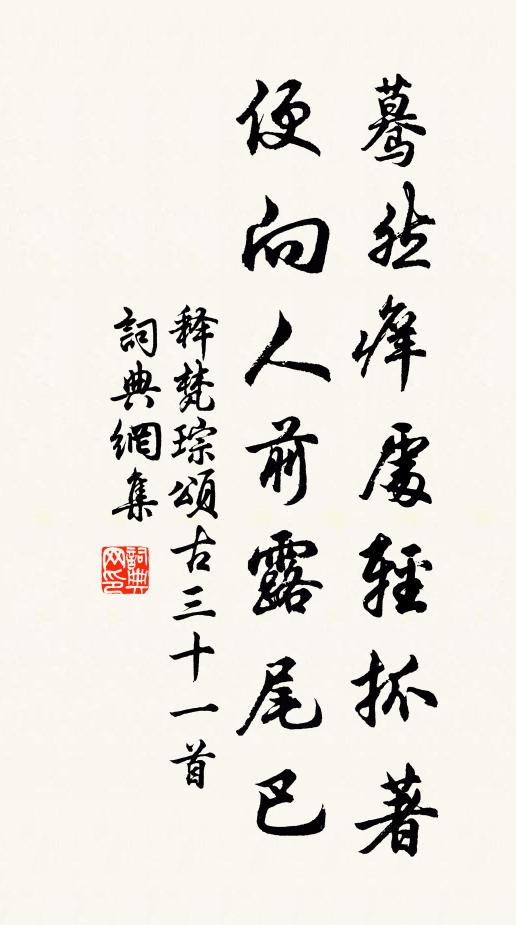 驀然痒處輕抓著
便向人前露尾巴
释梵琮頌古三十一首
詞典網集
詞典网印